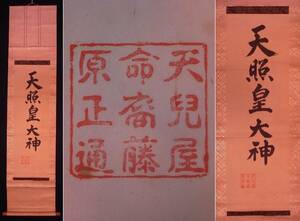 天照皇大神
天兒屋
命裔藤
原正通
天照皇大神